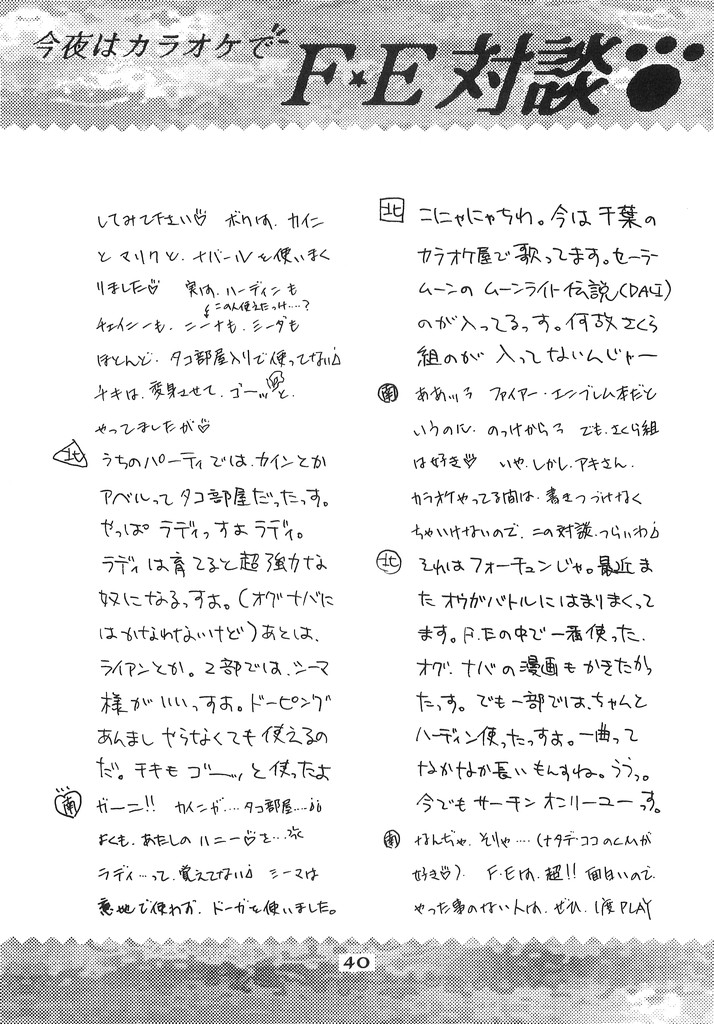 今夜はカラオケで
F★E対談
北 こにゃにゃちわ。今は千葉の
カラオケ屋で歌ってます。セーラー
ムーンのムーンライト伝説(DALI)
のが入ってるっす。何故さくら
組のが入ってないんじゃー
南 ああッろ ファイアー・エンブレム本だと
いうのに、のっけからろ でも、さくら組
は好き♡ いや、しかし、アキさん、
カラオケやってる間は、書きつづけなく
ちゃいけないので、この対談、つらいわ♪
北 それはフォーチュンじゃ。最近ま
たオウガバトルにはまりまくって
ます。F.Eの中で一番使った、
オグ、ナバの漫画もかきたかっ
たっす。でも一部では、ちゃんと
ハーディン使ったっすよ。一曲って
なかなか長いもんすね。ううっ。
今でもサーチンオンリーユーっす。
南 なんぢゃ、そりゃ‥‥(ナタデ・ココのCMが
好き♡)。 F.Eは、超!!面白いので、
やった事のない人は、ぜひ、1度PLAY
してみて下さい♡ ボクは、カイン
とマリクと、ナバールを使いまく
りました♡ 実は、ハーディンも
この人使えたっけ‥‥?
チェイニーも、ニーナも、ミーダも
ほとんど、タコ部屋入りで使ってない♪
チキは、変身させて、ゴーッと、
やってましたが♡
北 うちのパーティでは、カインとか
アベルってタコ部屋だったっす。
やっぱラディっすよラディ。
ラディは育てると超強力な
奴になるっすよ。(オグナバに
はかなわないけど)あとは、
ライアンとか。2部では、シーマ
様がいいっすよ。ドーピング
あんましやらなくても使えるの
だ。チキもゴーッと使ったよ
南 ガーン!! カインが‥‥タコ部屋‥‥
よくも、あたしのハニー♡を‥‥
ラディ‥‥って、覚えてない♪ シーマは
意地で使わず、ドーガを使いました。
40